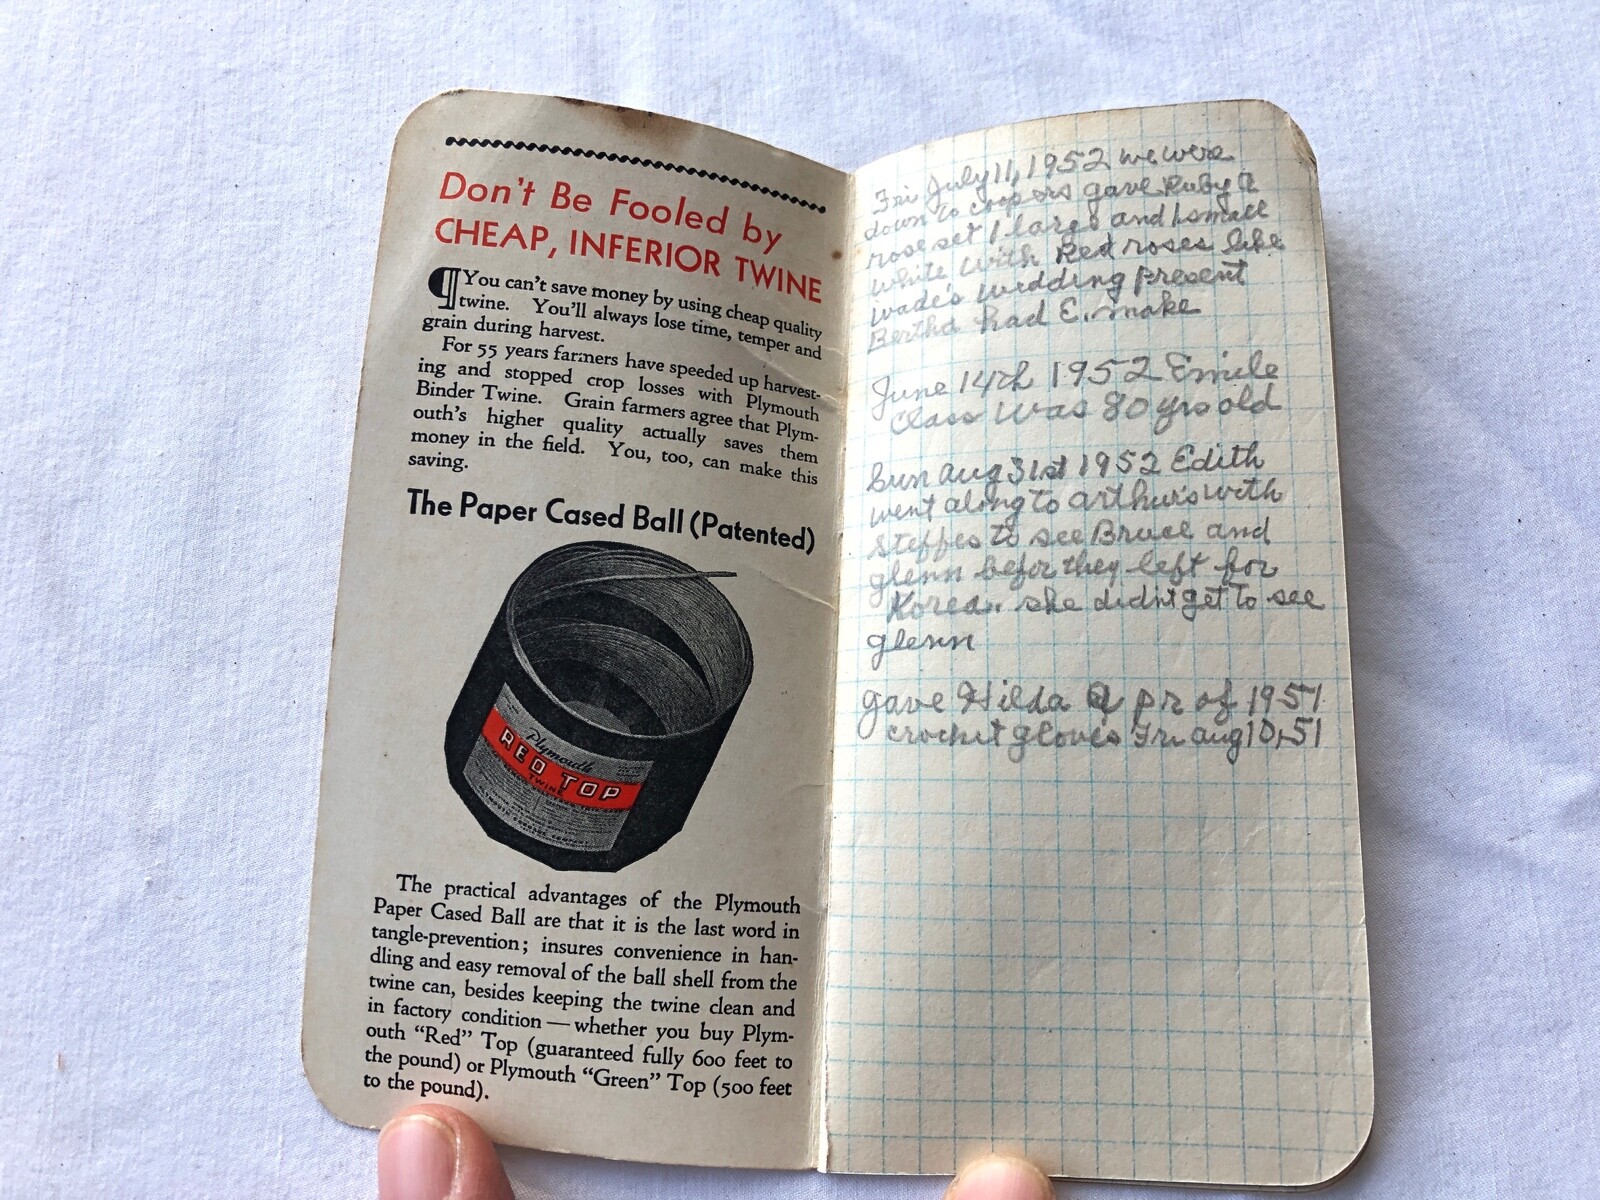 Don't Be Fooled by
CHEAP, INFERIOR TWINE
¶You can't save money by using cheap quality
twine. You'll always lose time, temper and
grain during harvest.
For 55 years farmers have speeded up harvest-
ing and stopped crop losses with Plymouth
Binder Twine. Grain farmers agree that Plym-
outh's higher quality actually saves them
money in the field. You, too, can make this
saving.
The Paper Cased Ball (Patented)
Plymouth
RED TOP
TWINE
The practical advantages of the Plymouth
Paper Cased Ball are that it is the last word in
tangle-prevention; insures convenience in han-
dling and easy removal of the ball shell from the
twine can, besides keeping the twine clean and
in factory condition — whether you buy Plym-
outh "Red" Top (guaranteed fully 600 feet to
the pound) or Plymouth "Green" Top (500 feet
to the pound).
Fri July 11, 1952 we were
down to coopers gave Ruby a
rose set 1 large and 1 small
white with Red roses like
wade's wedding present
Bertha had E. make
June 14th 1952 Emile
Class was 80 yrs old
Sun Aug 31st 1952 Edith
went along to Arthur's with
Steffes to see Bruce and
glenn befor they left for
Korea. she didn't get to see
glenn
gave Hilda a pr of 1951
crochet gloves Fri Aug 10, 51